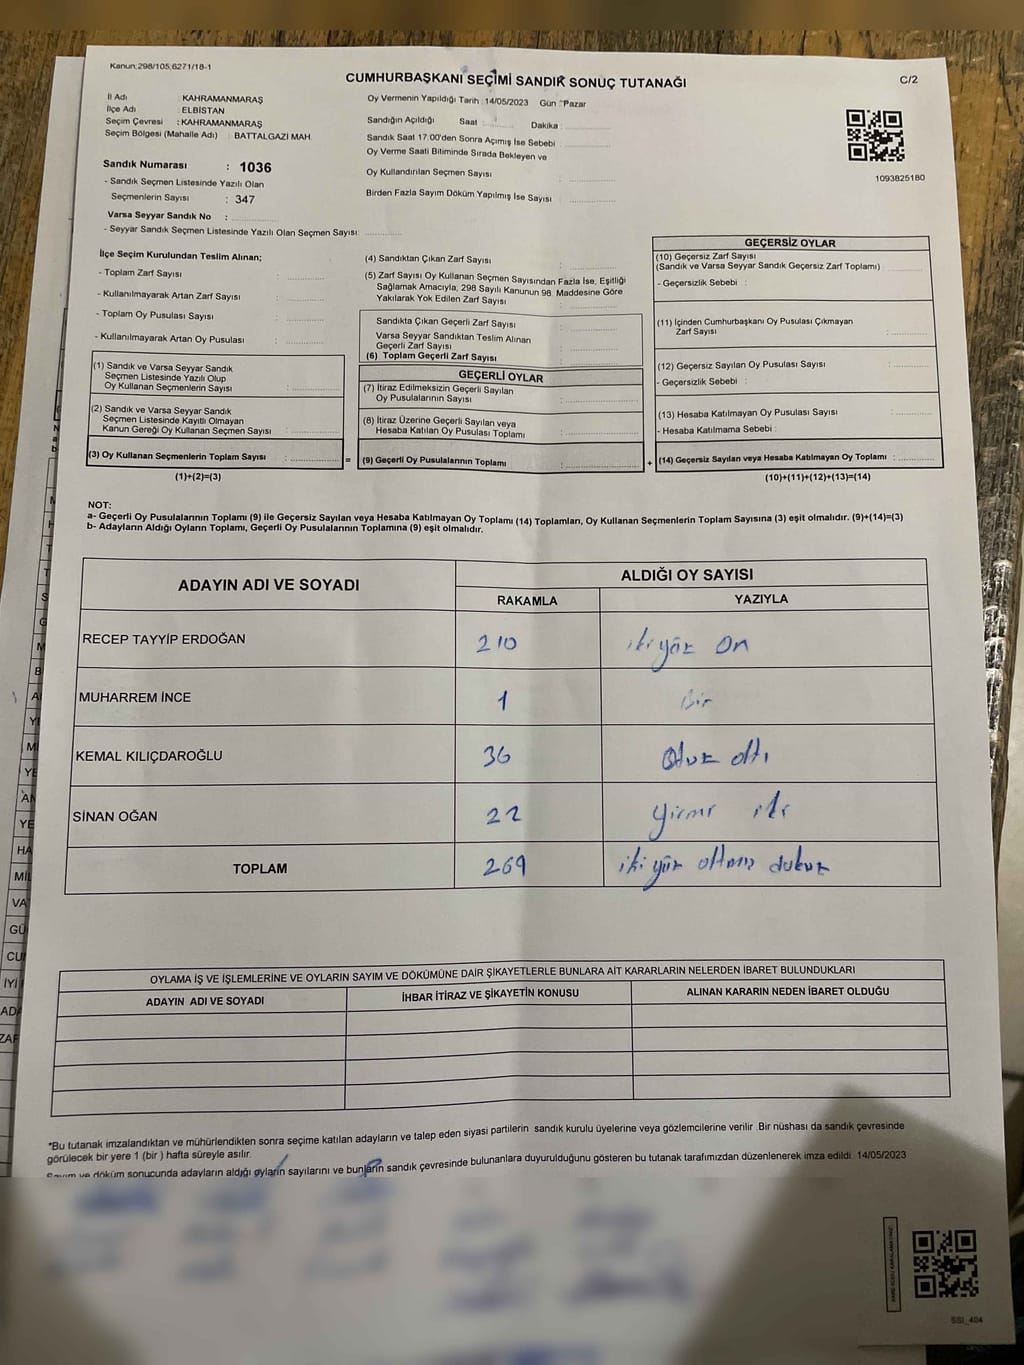 Kanun:298/105;6271/18-1
CUMHURBAŞKANI SEÇİMİ SANDIK SONUÇ TUTANAĞI
C/2
İl Adı : KAHRAMANMARAŞ
İlçe Adı : ELBİSTAN
Seçim Çevresi : KAHRAMANMARAŞ
Seçim Bölgesi (Mahalle Adı) : BATTALGAZİ MAH.
Sandık Numarası : 1036
- Sandık Seçmen Listesinde Yazılı Olan
Seçmenlerin Sayısı : 347
Varsa Seyyar Sandık No :
- Seyyar Sandık Seçmen Listesinde Yazılı Olan Seçmen Sayısı:
Oy Vermenin Yapıldığı Tarih : 14/05/2023 Gün : Pazar
Sandığın Açıldığı Saat : Dakika :
Sandık Saat 17.00'den Sonra Açımış İse Sebebi :
Oy Verme Saati Bitiminde Sırada Bekleyen ve
Oy Kullandırılan Seçmen Sayısı :
Birden Fazla Sayım Döküm Yapılmış İse Sayısı :
1093825180
İlçe Seçim Kurulundan Teslim Alınan;
- Toplam Zarf Sayısı :
- Kullanılmayarak Artan Zarf Sayısı :
- Toplam Oy Pusulası Sayısı :
- Kullanılmayarak Artan Oy Pusulası :
(1) Sandık ve Varsa Seyyar Sandık
Seçmen Listesinde Yazılı Olup
Oy Kullanan Seçmenlerin Sayısı :
(2) Sandık ve Varsa Seyyar Sandık
Seçmen Listesinde Kayıtlı Olmayan
Kanun Gereği Oy Kullanan Seçmen Sayısı :
(3) Oy Kullanan Seçmenlerin Toplam Sayısı :
(1)+(2)=(3)
(4) Sandıktan Çıkan Zarf Sayısı :
(5) Zarf Sayısı Oy Kullanan Seçmen Sayısından Fazla İse, Eşitliği
Sağlamak Amacıyla, 298 Sayılı Kanunun 98. Maddesine Göre
Yakılarak Yok Edilen Zarf Sayısı :
Sandıkta Çıkan Geçerli Zarf Sayısı :
Varsa Seyyar Sandıktan Teslim Alınan
Geçerli Zarf Sayısı :
(6) Toplam Geçerli Zarf Sayısı :
GEÇERLİ OYLAR
(7) İtiraz Edilmeksizin Geçerli Sayılan
Oy Pusulalarının Sayısı :
(8) İtiraz Üzerine Geçerli Sayılan veya
Hesaba Katılan Oy Pusulası Toplamı :
= (9) Geçerli Oy Pusulalarının Toplamı :
GEÇERSİZ OYLAR
(10) Geçersiz Zarf Sayısı
(Sandık ve Varsa Seyyar Sandık Geçersiz Zarf Toplamı) :
- Geçersizlik Sebebi :
(11) İçinden Cumhurbaşkanı Oy Pusulası Çıkmayan
Zarf Sayısı :
(12) Geçersiz Sayılan Oy Pusulası Sayısı :
- Geçersizlik Sebebi :
(13) Hesaba Katılmayan Oy Pusulası Sayısı :
- Hesaba Katılmama Sebebi :
+ (14) Geçersiz Sayılan veya Hesaba Katılmayan Oy Toplamı :
(10)+(11)+(12)+(13)=(14)
NOT:
a- Geçerli Oy Pusulalarının Toplamı (9) ile Geçersiz Sayılan veya Hesaba Katılmayan Oy Toplamı (14) Toplamları, Oy Kullanan Seçmenlerin Toplam Sayısına (3) eşit olmalıdır. (9)+(14)=(3)
b- Adayların Aldığı Oyların Toplamı, Geçerli Oy Pusulalarının Toplamına (9) eşit olmalıdır.
ADAYIN ADI VE SOYADI ALDIĞI OY SAYISI
RAKAMLA YAZIYLA
RECEP TAYYİP ERDOĞAN 210 iki yüz on
MUHARREM İNCE 1 Bir
KEMAL KILIÇDAROĞLU 36 Otuz altı
SİNAN OĞAN 22 yirmi iki
TOPLAM 269 iki yüz altmış dokuz
OYLAMA İŞ VE İŞLEMLERİNE VE OYLARIN SAYIM VE DÖKÜMÜNE DAİR ŞİKAYETLERLE BUNLARA AİT KARARLARIN NELERDEN İBARET BULUNDUKLARI
ADAYIN ADI VE SOYADI İHBAR İTİRAZ VE ŞİKAYETİN KONUSU ALINAN KARARIN NEDEN İBARET OLDUĞU
*Bu tutanak imzalandıktan ve mühürlendikten sonra seçime katılan adayların ve talep eden siyasi partilerin sandık kurulu üyelerine veya gözlemcilerine verilir. Bir nüshası da sandık çevresinde
görülecek bir yere 1 (bir ) hafta süreyle asılır.
Sayım ve döküm sonucunda adayların aldığı oyların sayılarını ve bunların sandık çevresinde bulunanlara duyurulduğunu gösteren bu tutanak tarafımızdan düzenlenerek imza edildi. 14/05/2023
SSI_404